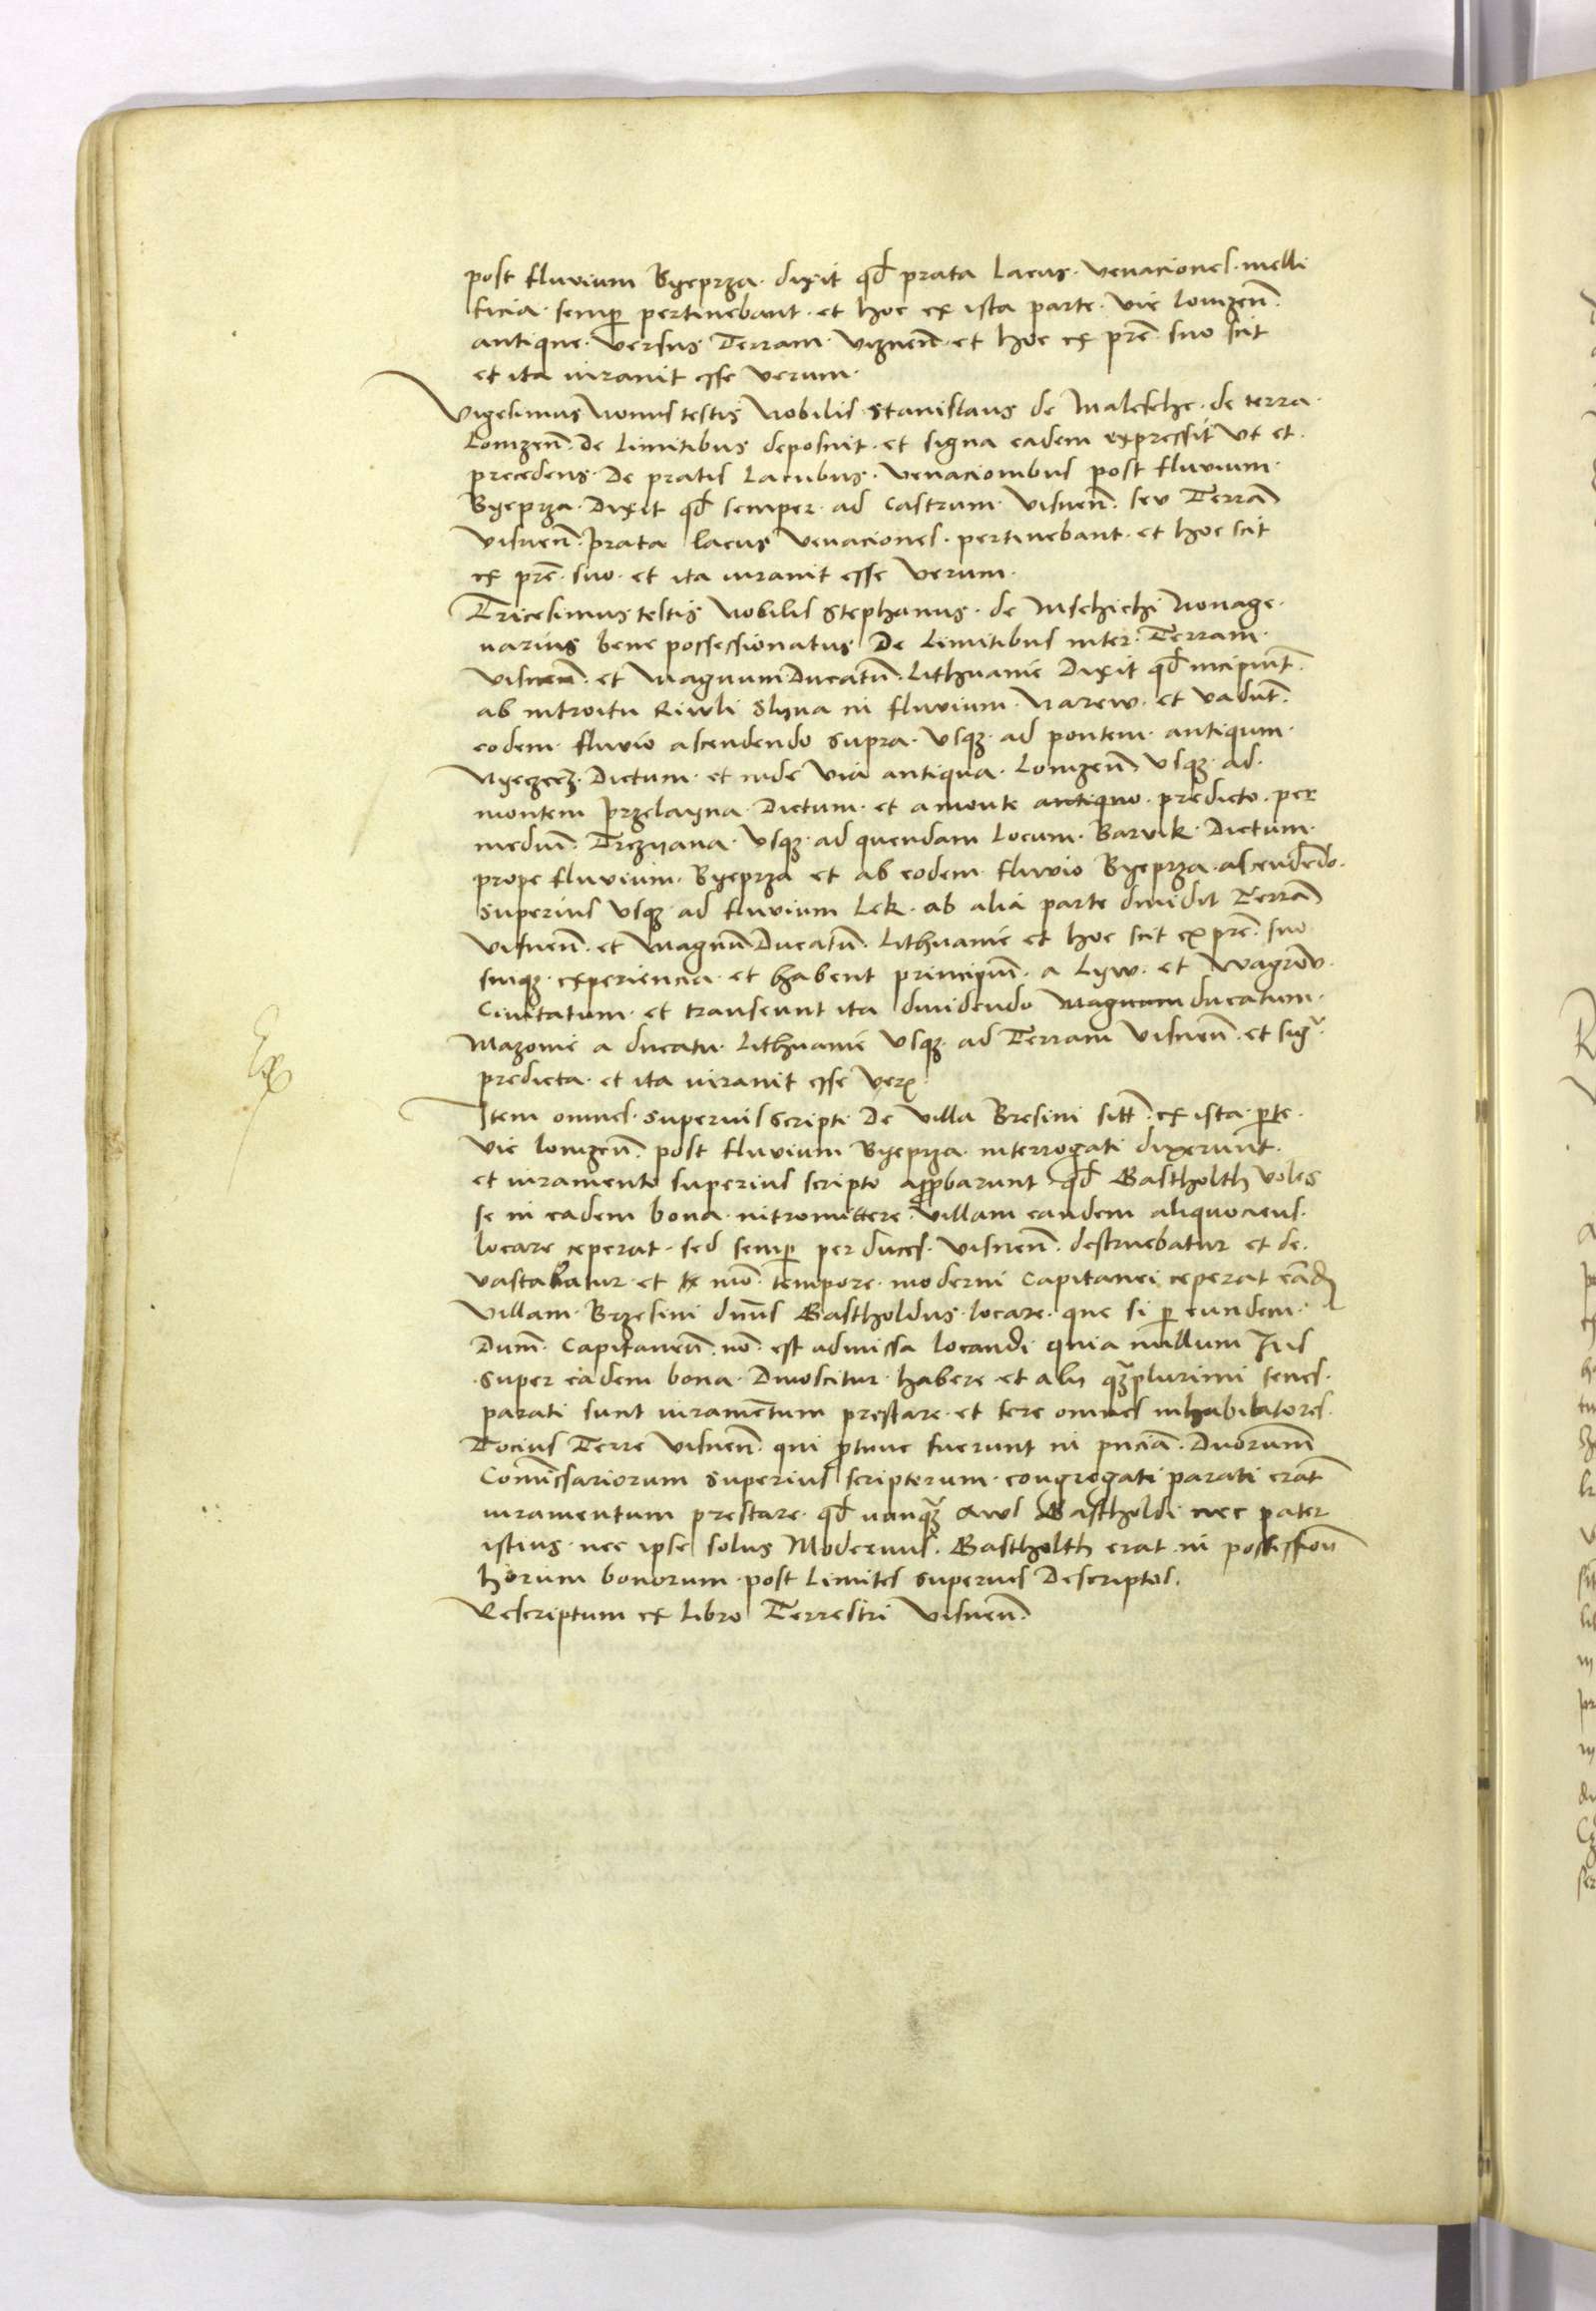 post fluvium Byeprza. dixit qd̄ prata lacus. venaciones. melli
ficia. semp̄ pertinebant. et hoc ex ista parte. vie lomzen̄.
antique. versus Terram. viznen̄. et hoc ex prē. suo scit
et ita iuravit esse verum.
Vigesimus Nonus testis Nobilis Stanislaus de Maleschе. de terra.
Lomzen̄. De limitibus deposuit. et signa eadem expressit vt et.
precedens. De pratis lacubus. venacionibus post fluvium.
Byeprza. Dixit qd̄ semper. ad Castrum. Visnen̄. seu Terrā
visnen̄. prata lacus venaciones. pertinebant. et hoc scit
ex prē. suo. et ita iuravit esse verum.
Tricesimus testis Nobilis Stephanus. de Mschichi Nonage.
narius bene possessionatus De Limitibus inter. Terram.
visnen̄. et Magnum Ducatū. Lithvanie Dixit qd̄ incipiūt.
ab introitu Riwli Slyna in fluvium. Narew. et vadūt.
eodem. fluvio ascendendo supra. vsqz. ad pontem. antiqum.
Nyeczecz. Dictum. et inde via antiqua. Lomzen̄ vsqz. ad.
montem Przelayna. Dictum. et a monte antiquo. predicto. per
mediū. Trczyana. vsqz. ad quendam Locum. Barvik. Dictum.
prope fluvium. Byeprza et ab eodem fluvio Byeprza. ascendēdo.
superius vsqz ad fluvium Lek. ab alia parte dividit Terrā
visnen̄. et Magnū Ducatū. Lithvanie et hoc scit ex prē. suo
suiqz. experiencia. et habent principiū. a Lyw. et Wagrow.
Civitatum. et transeunt ita dividendo Magnum ducatum.
Mazovie a ducatu. Lithvanie vsqz. ad Terram visnen̄. et sigª.
predicta. et ita iuravit esse ver.
Item omnes. superius scripti. De villa Bresini sitt̄. ex ista. pte.
vie lomzen̄. post fluvium Byeprza. interrogati dixerunt.
et iuramento superius scripto approbarunt qd̄ Gastholth voles
se in eadem bona. intromittere. villam eandem aliquociens.
locare ceperat. sed semp̄ per duces. visnen̄. destruebatur et de.
vastabatur. et mō. tempore. moderni Capitanei ceperat eād
villam. Brzesini dn̄us Gastholdus. locare. que si p̄ eundem.
Dum̄. Capitaneū. nō. est admissa locandi quia nullum Jus
super eadem bona. Dinoscitur. habere. et alij qzplurimi senes.
parati sunt iuramentum prestare. et fere omnes inhabitatores.
Tocius Terre visnen̄. qui ptunc fuerunt in pnciā. Duorum
Comissariorum superius scriptorum. congregati parati erāt
iuramentum prestare. qd̄ nunqz Aws Gastholdi nec pater
istius. nec ipse solus Modernus. Gastholth erat in possession̄
horum bonorum. post Limites superius Descriptos.
Rescriptum ex libro Terrestri visnen̄.